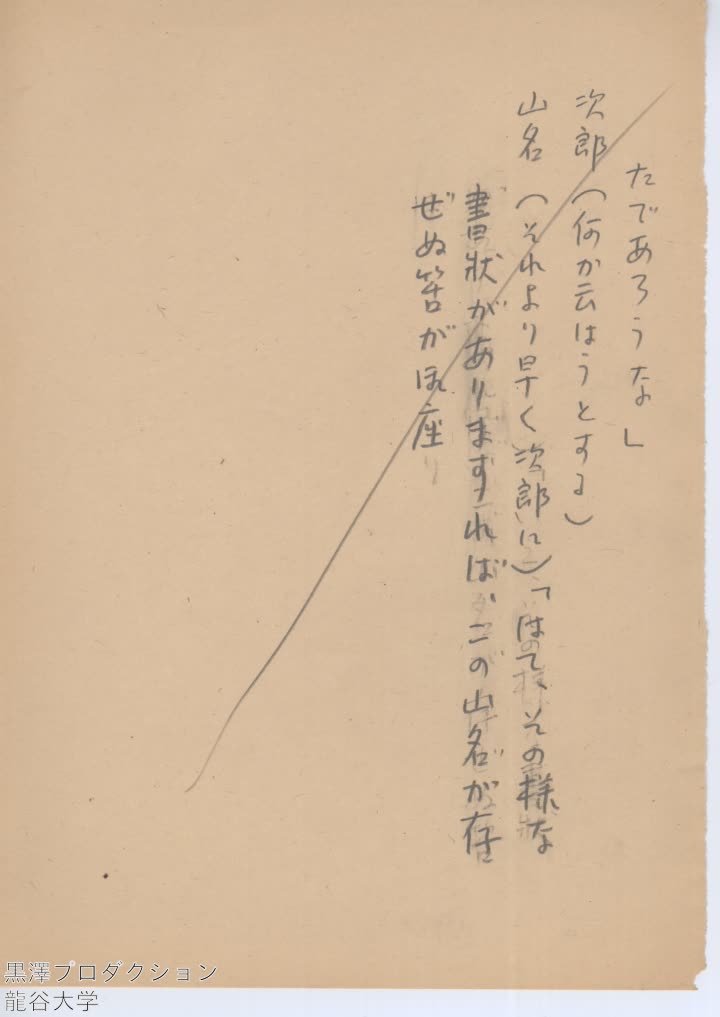 たであろうな」
次郎（何か云はうとする）
山名（それより早く次郎に）「はて、その様な
書状がありますれば、この山名が存
ぜぬ筈が御座
黒澤プロダクション
龍谷大学